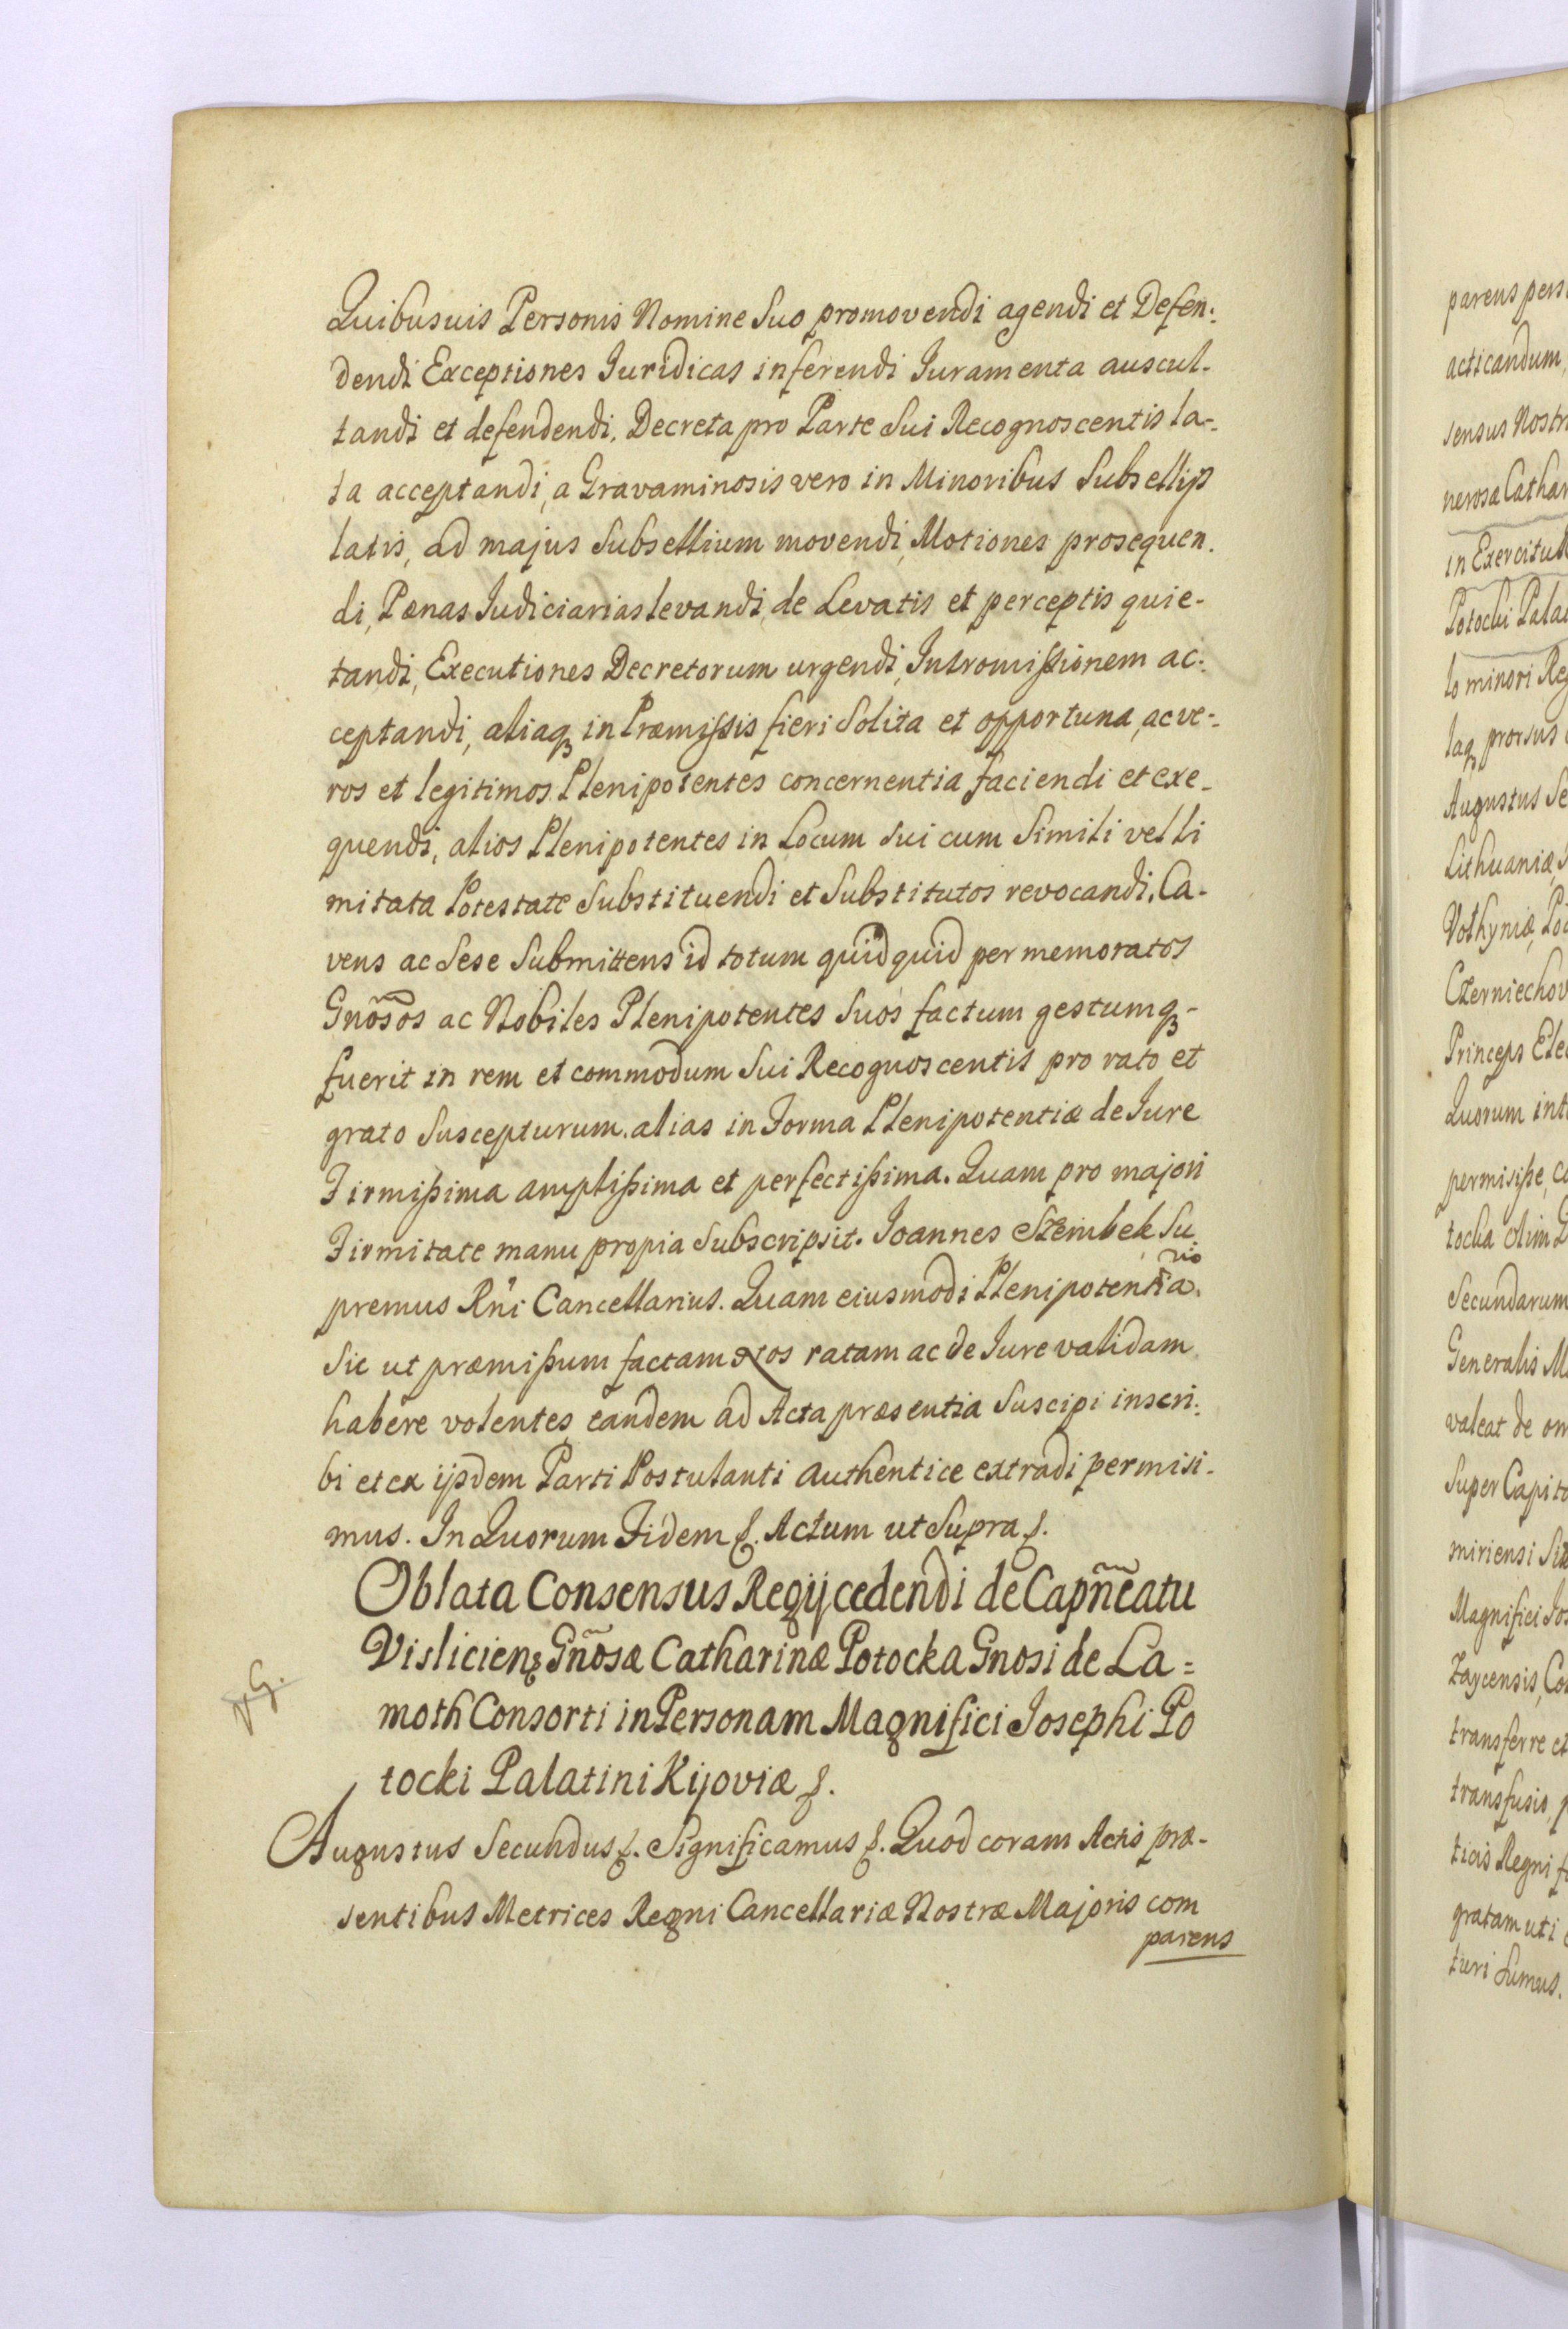 Quibusuis Personis Nomine Suo promovendi agendi et Defen:
dendi Exceptiones Iuridicas inferendi Iuramenta auscul-
tandi et defendendi, Decreta pro Parte Sui Recognoscentis la-
ta acceptandi, a Gravaminosis vero in Minoribus Subsellijs
latis, ad majus Subsellium movendi, Motiones prosequen.
di, Pænas Iudiciarias levandi, de Levatis et perceptis quie-
tandi, Executiones Decretorum urgendi, Intromissionem ac:
ceptandi, aliaq3 in Præmissis fieri Solita et opportuna, ac ve-
ros et legitimos Plenipotentes concernentia faciendi et exe-
quendi, alios Plenipotentes in Locum sui cum Simili vel li
mitata Potestate Substituendi et Substitutos revocandi. Ca-
vens ac Sese Submittens id totum quidquid per memoratos
Gnõsos ac Nobiles Plenipotentes Suos factum gestumq3-
fuerit in rem et commodum Sui Recognoscentis pro rato et
grato Suscepturum. alias in Forma Plenipotentiæ de Iure
Firmißima amplißima et perfectißima. Quam pro majori
Firmitate manu propia Subscripsit. Ioannes Szembek Su.
premus Rñi Cancellarius. Quam eiusmodi Plenipotentia.
Sic ut præmißum factam Nos ratam ac de Iure validam
habere volentes, eandem ad Acta præsentia Suscipi inscri:
bi et ex ijsdem Parti Postulanti Authentice extradi permisi-
mus. In Quorum Fidem &. Actum ut Supra &.
Oblata Consensus Regij cedendi de Capñeatu
Vislicien3 Gñosæ Catharinæ Potocka Gnosi de La=
moth Consorti in Personam Magnifici Iosephi Po
tocki Palatini Kijoviæ &.
Augustus Secundus &. Significamus &. Quod coram Actis præ-
sentibus Metrices Regni Cancellariæ Nostræ Majoris com
parens
parens pers
acticandum,
sensus Nostri
nerosæ Cathar
in Exercitu
Potocki Pala
lo minori Reg
laq3 prorsus
Augustus Se
Lithuaniæ,
Volhyniæ, Po
Czerniechov
Princeps Ele
Quorum int
permisiße, c
tocka olim
Secundarum
Generalis M
valeat de om
Super Capit
miriensi Si
Magnifici Jos
Zaycensis, Co
transferre et
transfusio, p
ticis Regni f
gratam uti
turi Sumus.